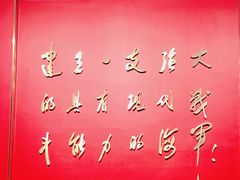 建立一支强大
的具有现代战
斗能力的海军！